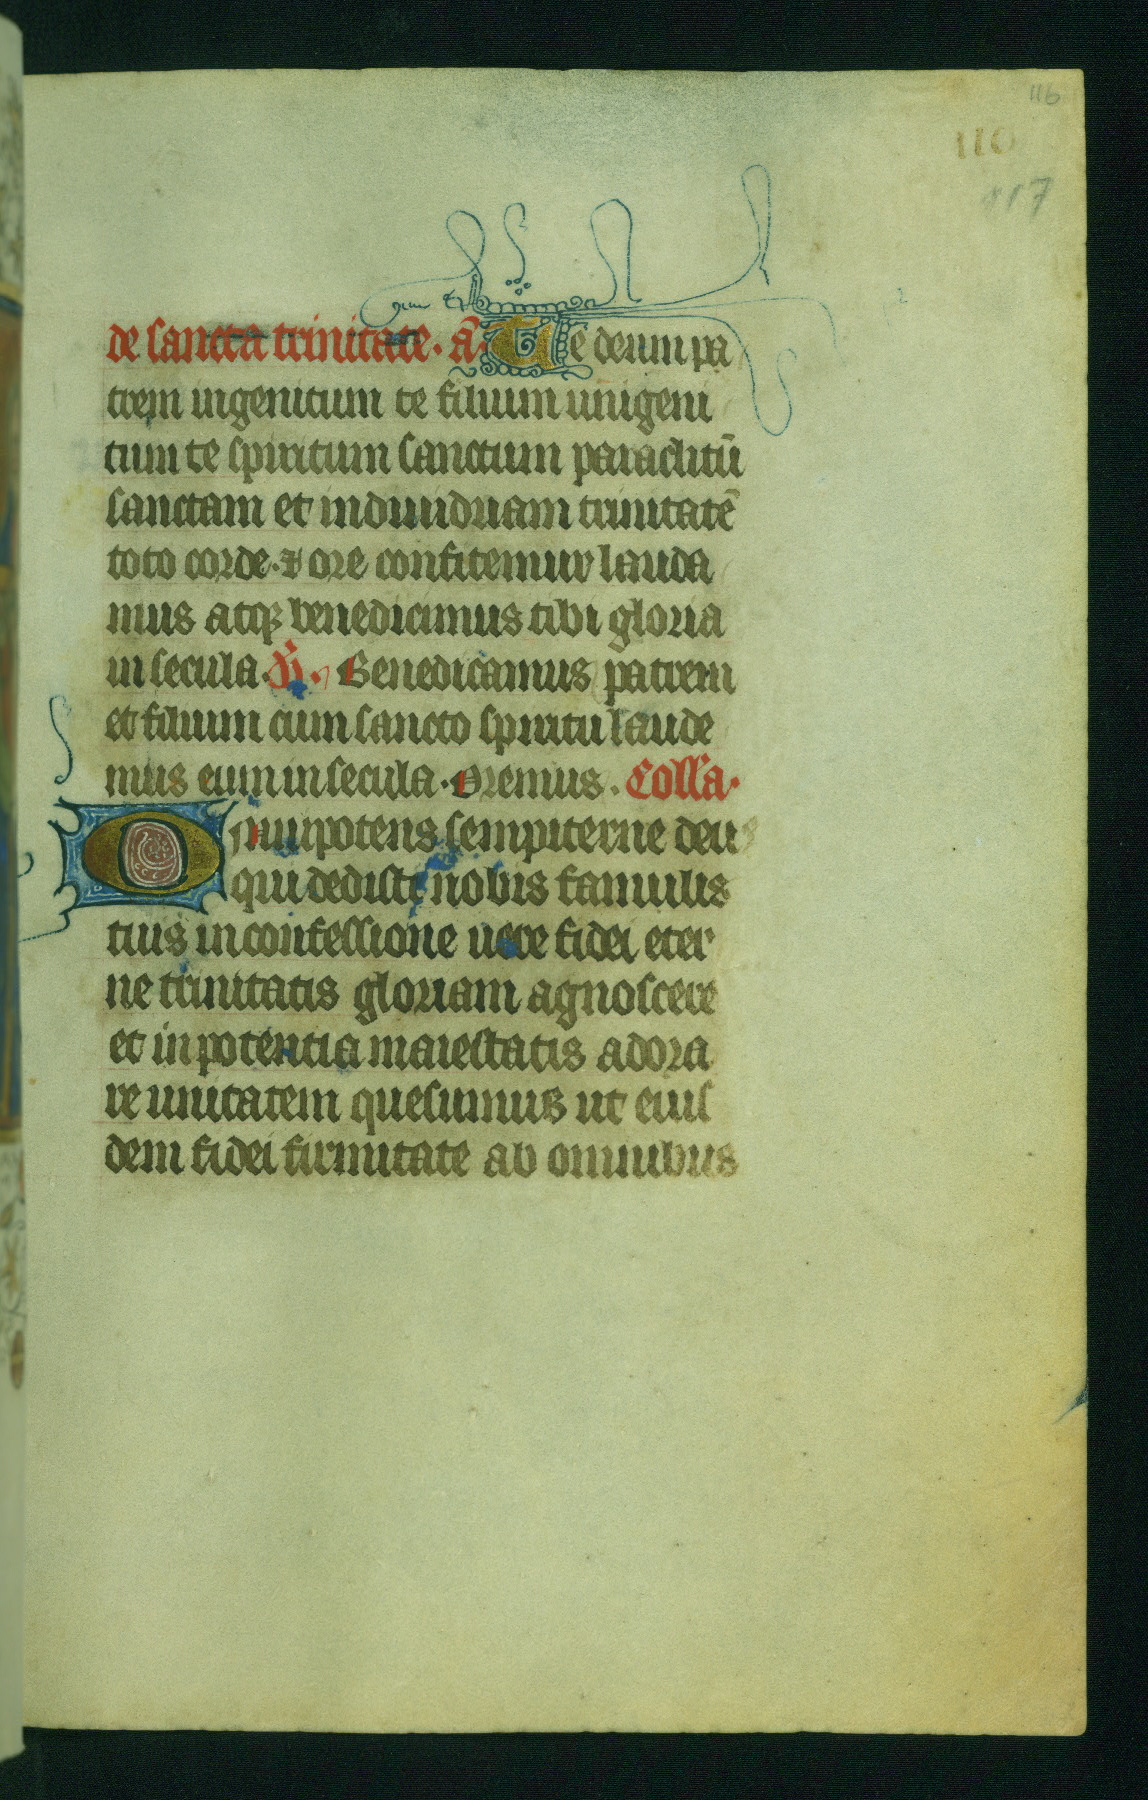 116
110
117
de sancta trinitate. añ. Te deum pa
trem ingenitum te filium unigeni
tum te spiritum sanctum paraclitū
sanctam et indiuiduam trinitatē
toto corde ⁊ ore confitemur lauda
mus atqꝫ benedicimus tibi gloria
in secula. ℣. Benedicamus patrem
et filium cum sancto spiritu laude
mus eum in secula. Oremus. Coll'a.
Omnipotens sempiterne deus
qui dedisti nobis famulis
tuis in confessione uere fidei eter
ne trinitatis gloriam agnoscere
et in potentia maiestatis adora
re unitatem quesumus ut eius
dem fidei firmitate ab omnibus